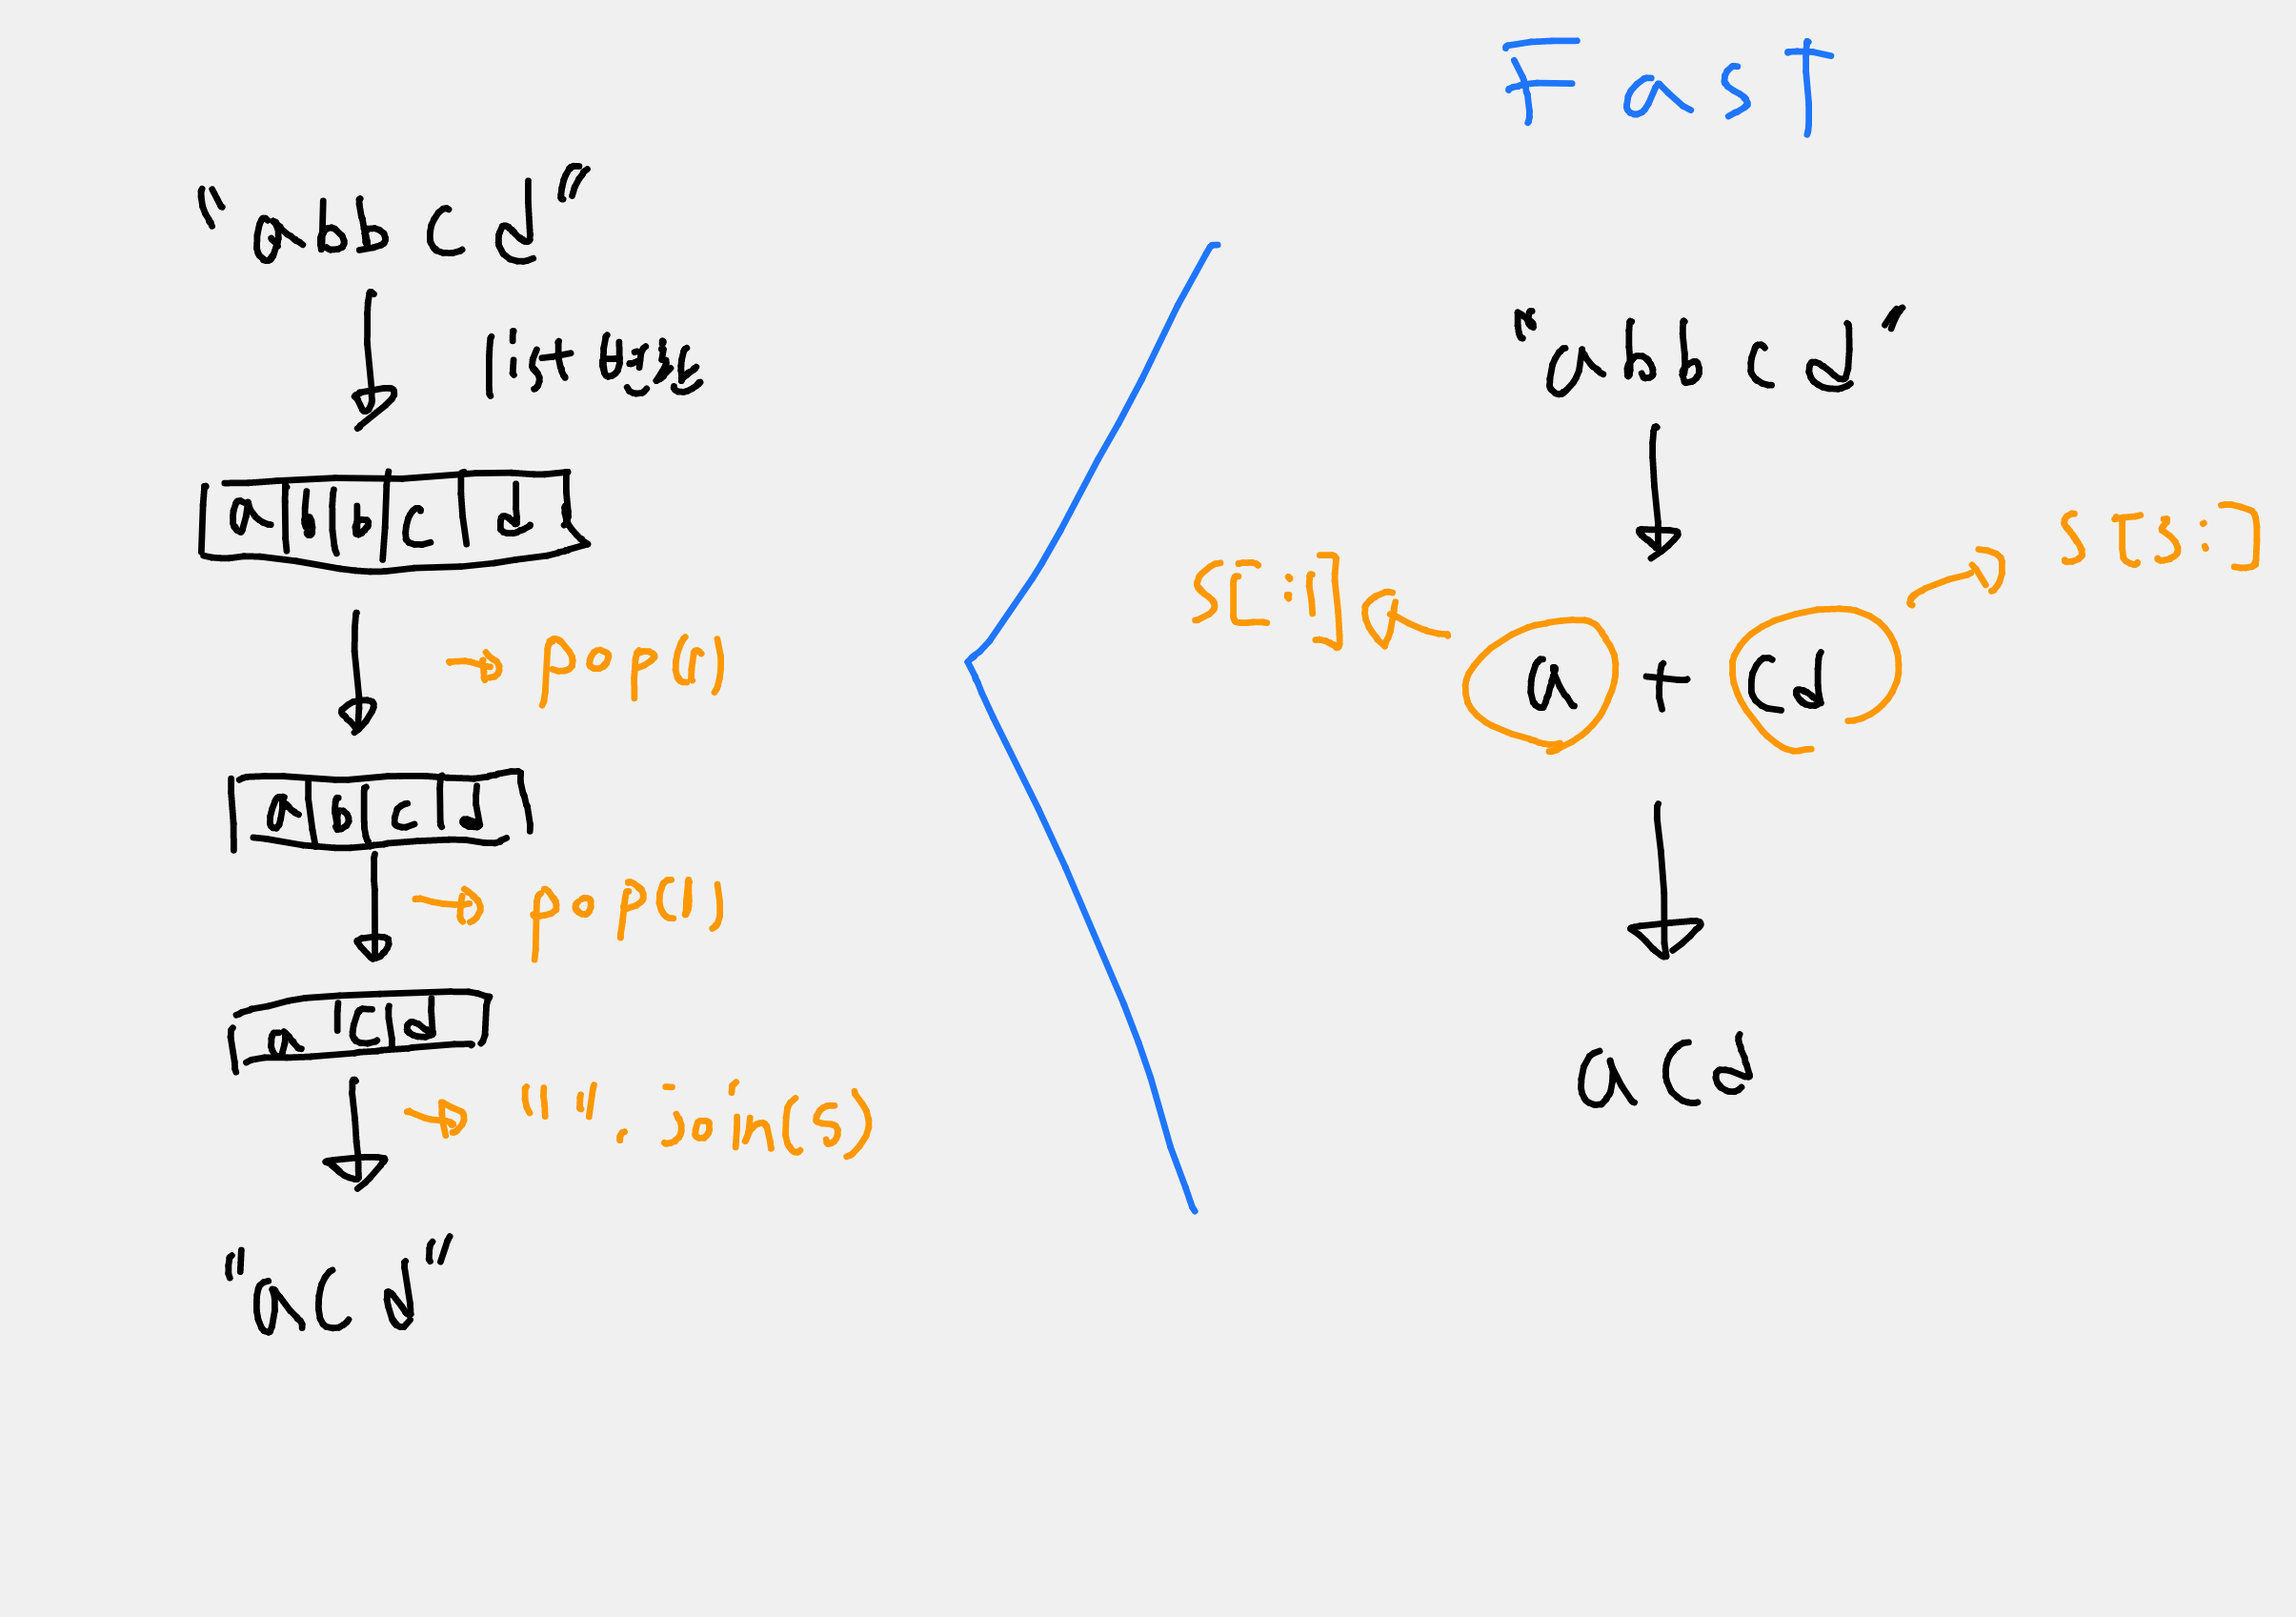 Fast
"abbcd"
list
a b b c d
→ pop(1)
a b c d
→ pop(1)
a c d
→ "".join(s)
"acd"
"abbcd"
s[:1]
s[3:]
a + cd
acd